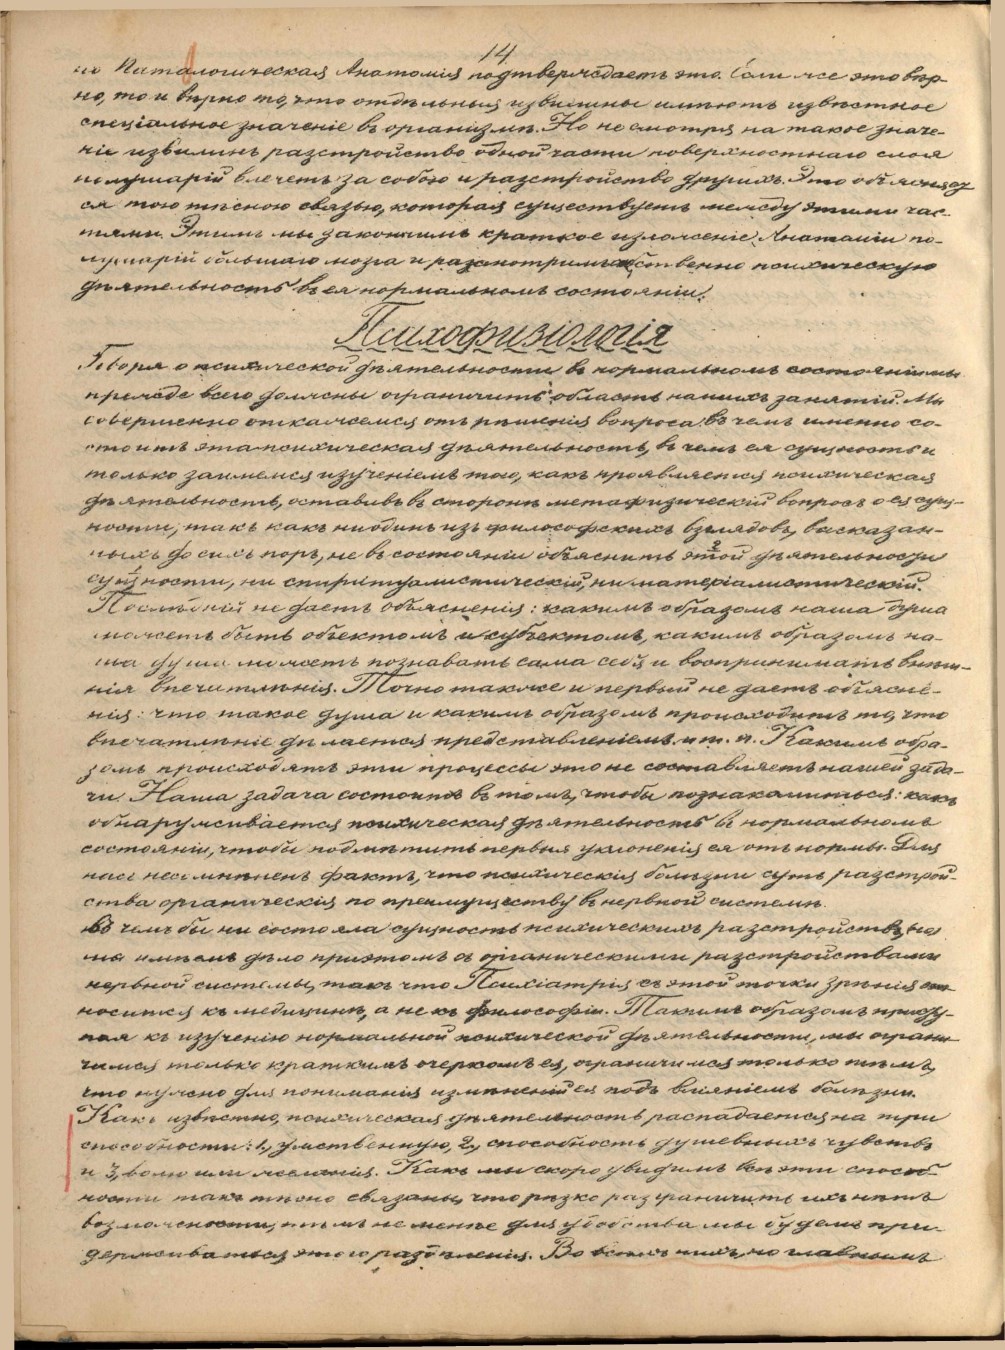 14
но Паталогическая Анатомія подтверждаетъ это. Если же это вѣр-
но, то и вѣрно то, что отдѣльныя извилины имѣютъ извѣстное
спеціальное значеніе въ организмѣ. Но не смотря на такое значе-
ніе извилинъ разстройство одной части поверхностнаго слоя
полушарій влечетъ за собою и разстройство другихъ. Это объясняет
ся тою тѣсною связью, которая существуетъ между этими час-
тями. Этимъ мы закончимъ краткое изложеніе Анатаміи по-
лушарій большаго мозга и разсмотримъ собственно психическую
дѣятельность въ ея нормальномъ состояніи.
Психофизіологія
Говоря о психической дѣятельности въ нормальномъ состояніи мы
прежде всего должны ограничить область нашихъ занятій. Мы
совершенно откажемся отъ рѣшенія вопроса въ чемъ именно со-
стоитъ эта психическая дѣятельность, въ чемъ ея сущность и
только займемся изученіемъ того, какъ проявляется психическая
дѣятельность, оставивъ въ сторонѣ метафизическій вопросъ о ея сущ-
ности, такъ какъ ни одинъ изъ философскихъ взглядовъ, высказан-
ныхъ до сихъ поръ, не въ состояніи объяснить этой дѣятельности
сущности, ни спиритуалистическій, ни матеріалистическій.
Послѣдній не даетъ объясненія: какимъ образомъ наша душа
можетъ быть объектомъ и субъектомъ, какимъ образомъ на-
ша душа можетъ познавать сама себя и воспринимать внѣш-
нія впечатлѣнія. Точно также и первый не даетъ объясне-
нія: что такое душа и какимъ образомъ происходитъ то, что
впечатлѣніе дѣлается представленіемъ и т. п. Какимъ обра-
зомъ происходятъ эти процессы это не составляетъ нашей зада-
чи. Наша задача состоитъ въ томъ, чтобы познакомиться: какъ
обнаруживается психическая дѣятельность въ нормальномъ
состояніи, чтобы подмѣтить первыя уклоненія ея отъ нормы. Для
насъ несомнѣненъ фактъ, что психическія болѣзни суть разстрой-
ства органическія по преимуществу въ нервной системѣ.
Въ чемъ бы ни состояла сущность психическихъ разстройствъ, но
мы имѣемъ дѣло при этомъ съ органическими разстройствами
нервной системы, такъ что Психіатрія съ этой точки зрѣнія от-
носится къ медицинѣ, а не къ философіи. Такимъ образомъ присту-
пая къ изученію нормальной психической дѣятельности, мы ограни-
чимся только краткимъ очеркомъ ея, ограничимся только тѣмъ,
что нужно для пониманія измѣненій ея подъ вліяніемъ болѣзни.
Какъ извѣстно, психическая дѣятельность распадается на три
способности: 1, умственную, 2, способность душевныхъ чувствъ
и 3, волю или желанія. Какъ мы скоро увидимъ всѣ эти способ-
ности такъ тѣсно связаны, что рѣзко разграничить ихъ нѣтъ
возможности, тѣмъ не менѣе для удобства мы будемъ при-
держиваться этого раздѣленія. Во всѣхъ нихъ, но главнымъ